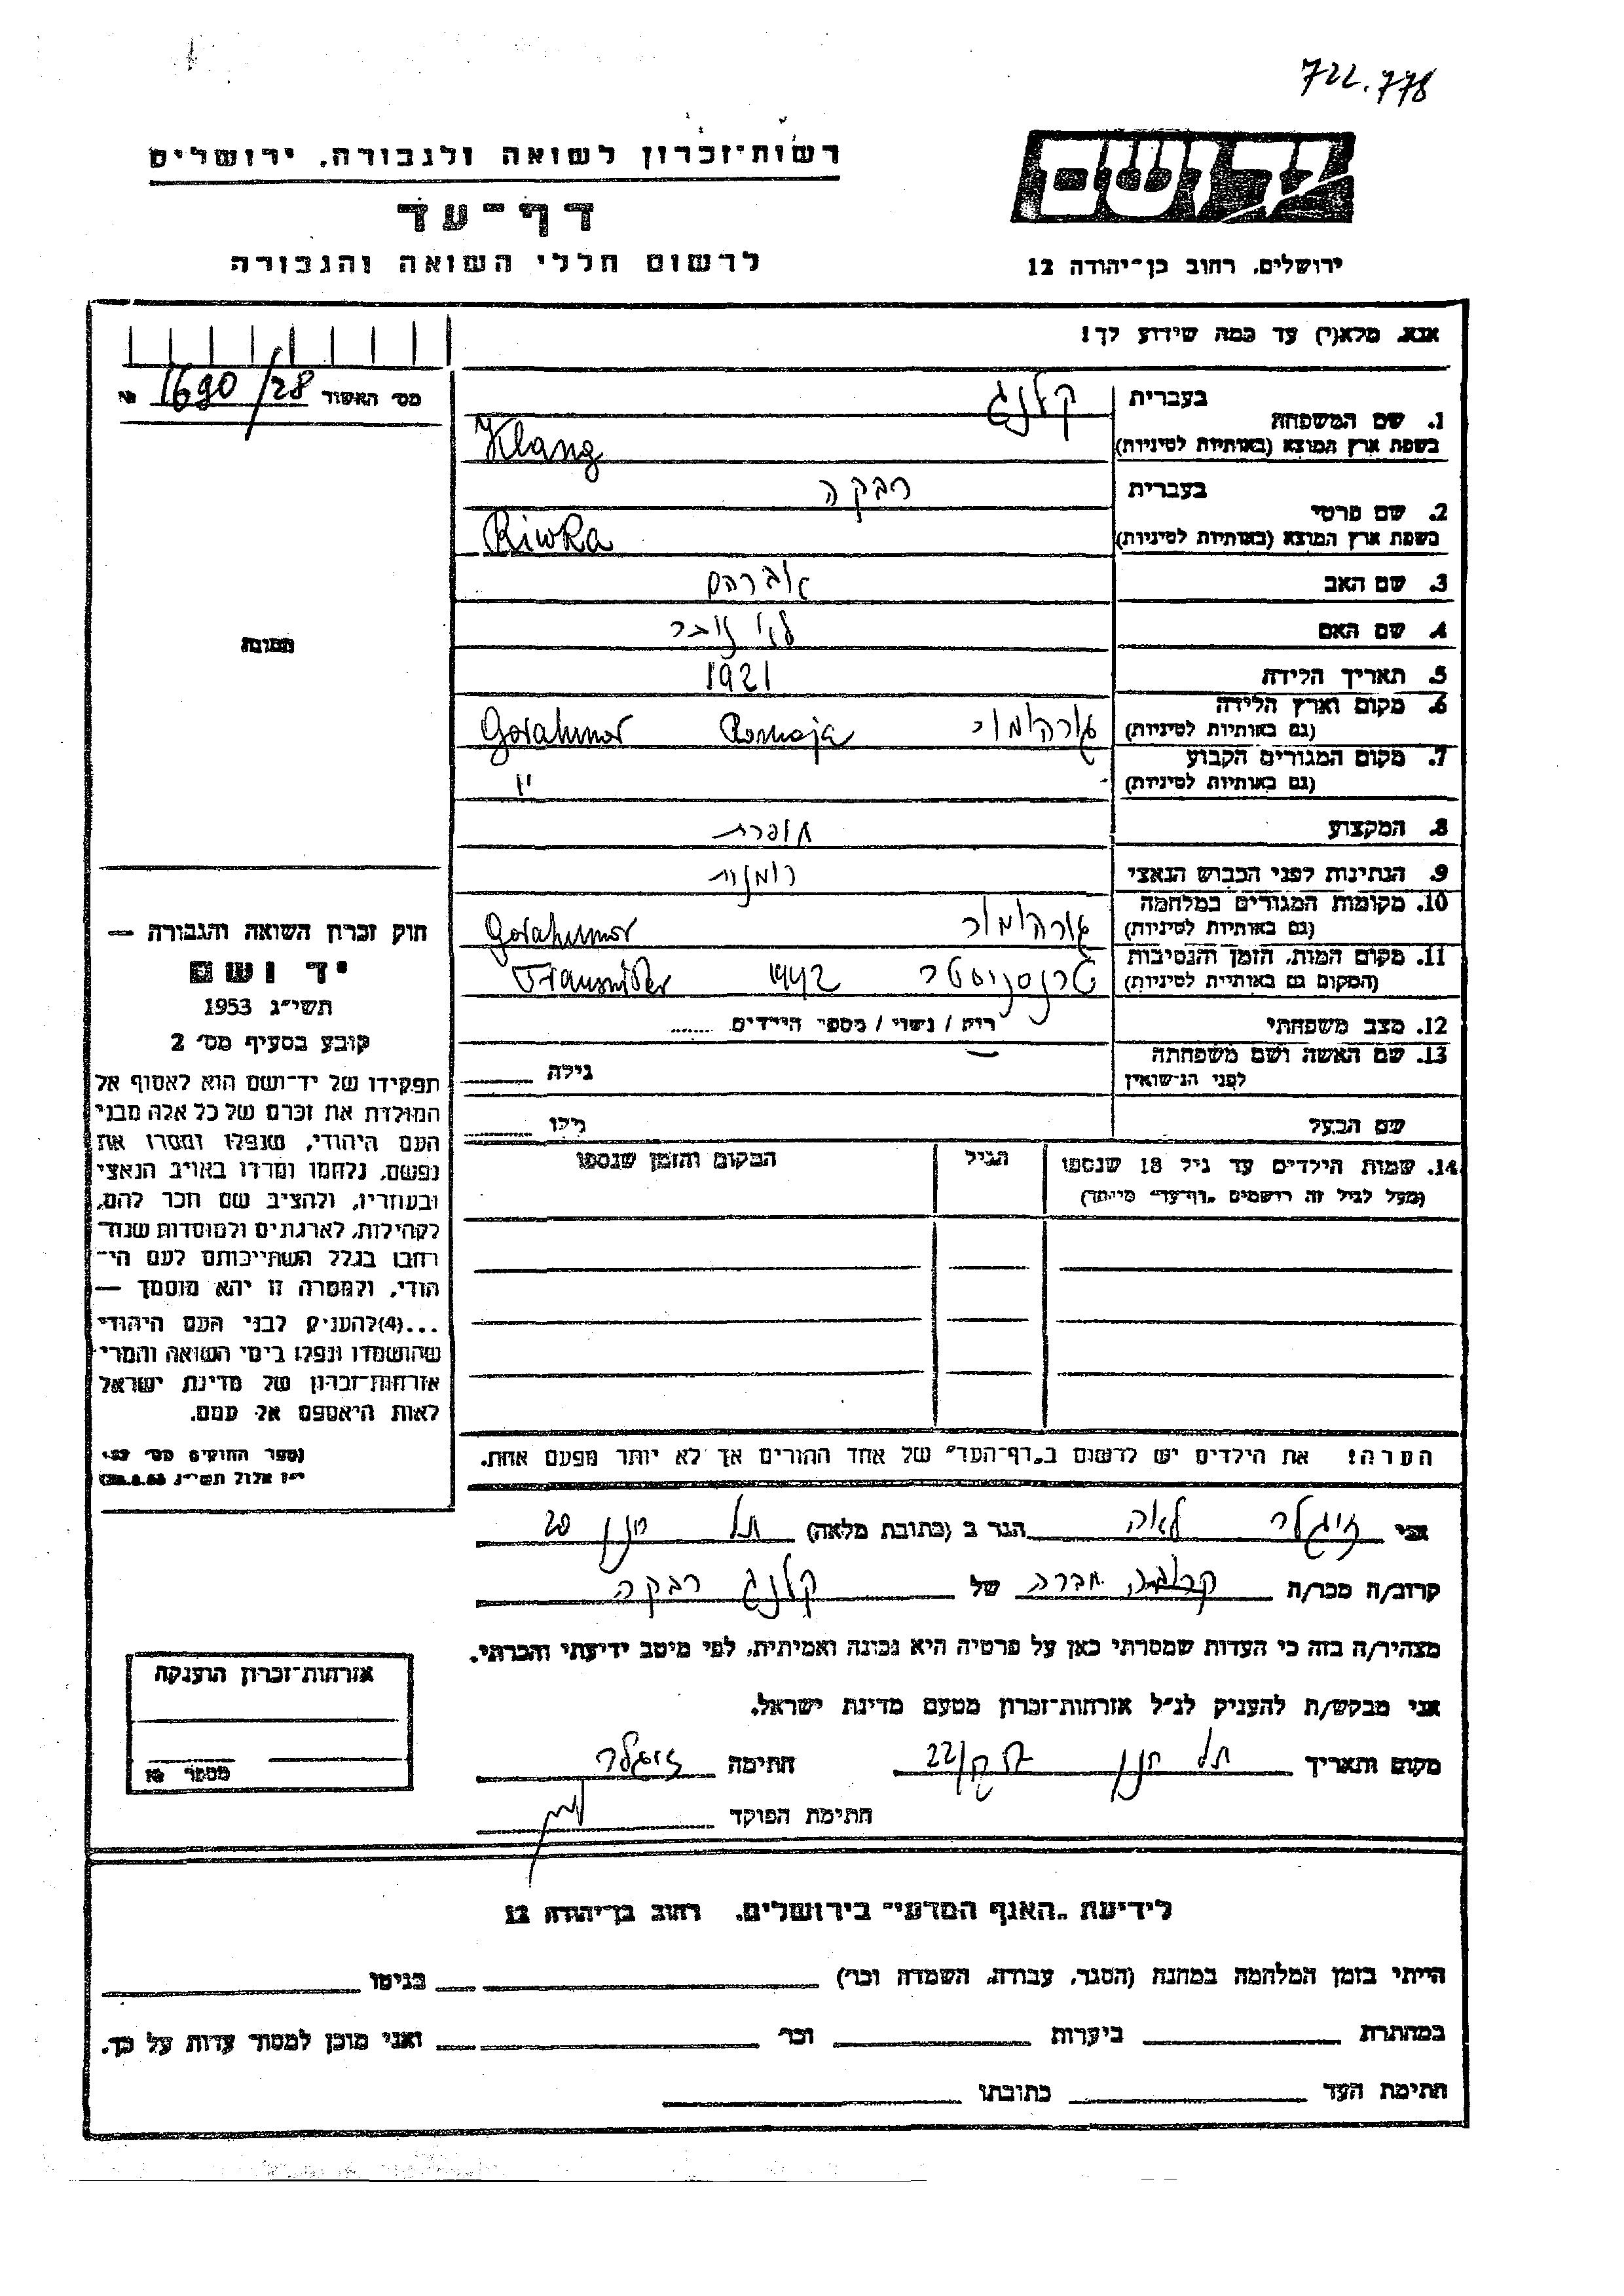 722.778
רשות־זכרון לשואה ולגבורה, ירושלים
דף־עד
לרשום חללי השואה והגבורה
ידושם
ירושלים, רחוב בן־יהודה 12
אנא, מלא(י) עד כמה שידוע לך!
מס׳ האשור 1690/28 №
1. שם המשפחה בעברית קלנג
בשפת ארץ המוצא (באותיות לטיניות) Klang
2. שם פרטי בעברית רבקה
בשפת ארץ המוצא (באותיות לטיניות) Riwka
3. שם האב אברהם
4. שם האם
5. תאריך הלידה 1921
6. מקום וארץ הלידה גורהומור Gorahmor
(גם באותיות לטיניות)
7. מקום המגורים הקבוע "
(גם באותיות לטיניות)
8. המקצוע תופרת
9. הנתינות לפני הכבוש הנאצי רומנית
10. מקומות המגורים במלחמה גורהומור Gorahumor
(גם באותיות לטיניות)
11. מקום המות, הזמן והנסיבות טרנסניסטר 1942
(המקום גם באותיות לטיניות)
12. מצב משפחתי רוק / נשוי / מספר הילדים
13. שם האשה ושם משפחתה גילה
לפני הנישואין
שם הבעל גילו
14. שמות הילדים עד גיל 18 שנספו הגיל המקום והזמן שנספו
(מעל לגיל זה רושמים „דף־עד״ מיוחד)
הערה! את הילדים יש לרשום ב„דף־העד״ של אחד ההורים אך לא יותר מפעם אחת.
תמונה
חוק זכרון השואה והגבורה —
יד ושם
תשי״ג 1953
קובע בסעיף מס׳ 2
תפקידו של יד־ושם הוא לאסוף אל
המולדת את זכרם של כל אלה מבני
העם היהודי, שנפלו ומסרו את
נפשם, נלחמו ומרדו באויב הנאצי
ובעוזריו, ולהציב שם וזכר להם,
לקהילות, לארגונים ולמוסדות שנח־
רבו בגלל השתייכותם לעם הי־
הודי, ולמטרה זו יהא מוסמך —
...(4)להעניק לבני העם היהודי
שהושמדו ונפלו בימי השואה והמרי
אזרחות־זכרון של מדינת ישראל
לאות היאספם אל עמם.
(ספר החוקים מס׳ 132,
י״ז אלול תשי״ג 28.8.53)
אני זיגלר לאה הגר ב (כתובת מלאה) תל חנן 20
קרוב/ה מכר/ה חברה של קלנג רבקה
מצהיר/ה בזה כי העדות שמסרתי כאן על פרטיה היא נכונה ואמיתית, לפי מיטב ידיעתי והכרתי.
אני מבקש/ת להעניק לנ״ל אזרחות־זכרון מטעם מדינת ישראל.
מקום ותאריך תל חנן חתימה זיגלר
חתימת הפוקד
אזרחות־זכרון הוענקה
מספר №
לידיעת „האגף המדעי״ בירושלים, רחוב בן־יהודה 12
הייתי בזמן המלחמה במחנה (הסגר, עבודה, השמדה וכו׳) בגיטו
במחתרת ביערות וכו׳ ואני מוכן למסור עדות על כך.
חתימת העד כתובתו